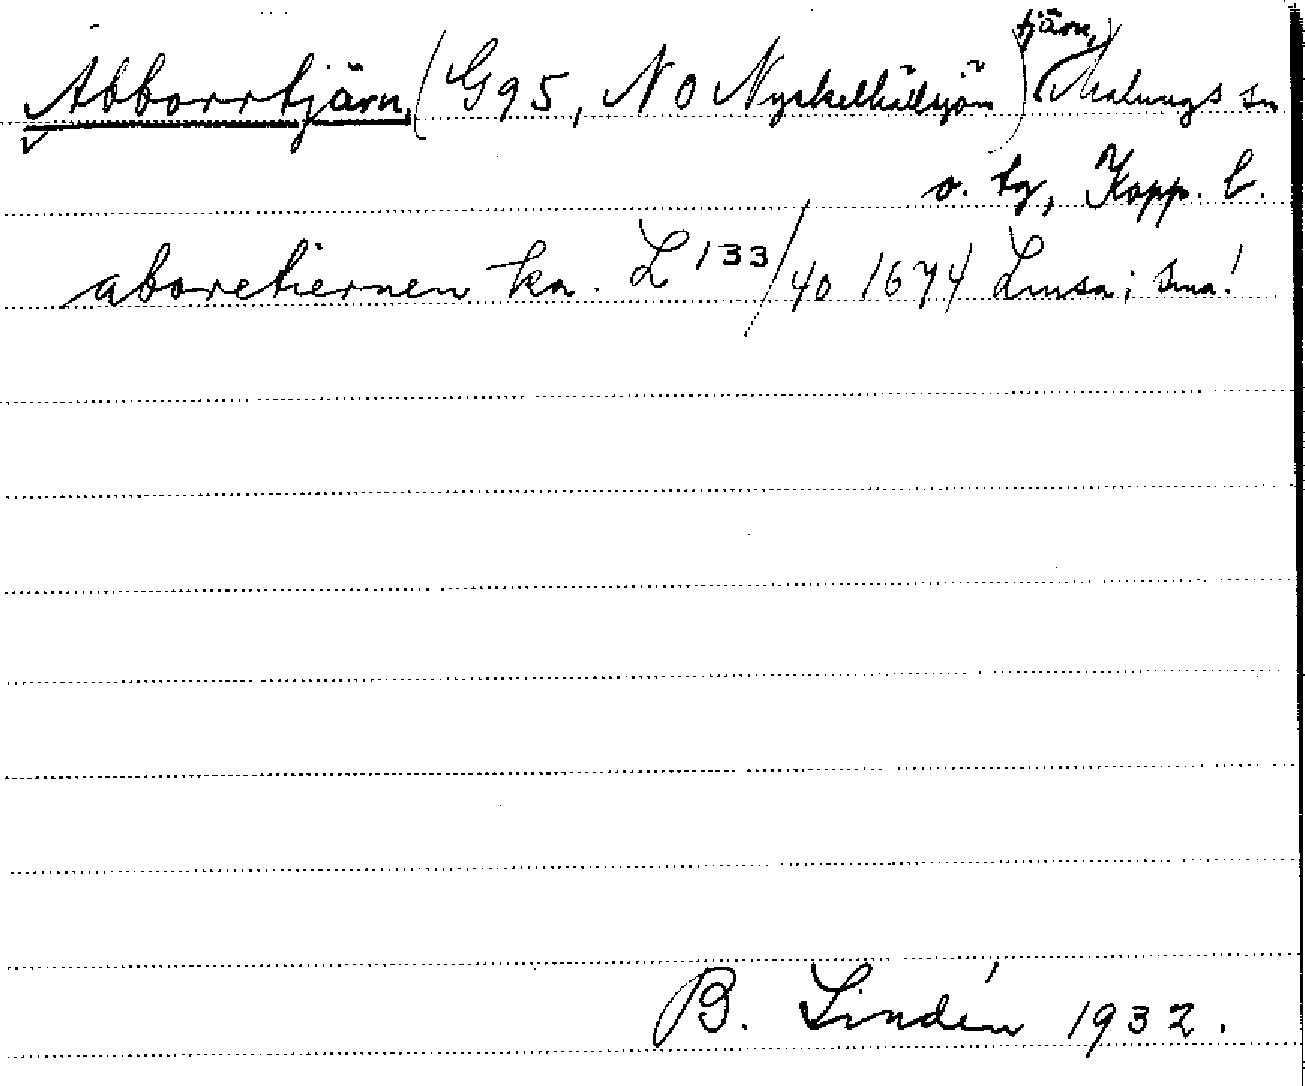 Abborrtjärn, (G95, NO Nyskelhålsjön) (tjärn,) Malungs sn
o. tg, Kopp. l.
aboretiernen ka. L 133/40 1674 Lmsa; sma!
B. Lindén 1932.